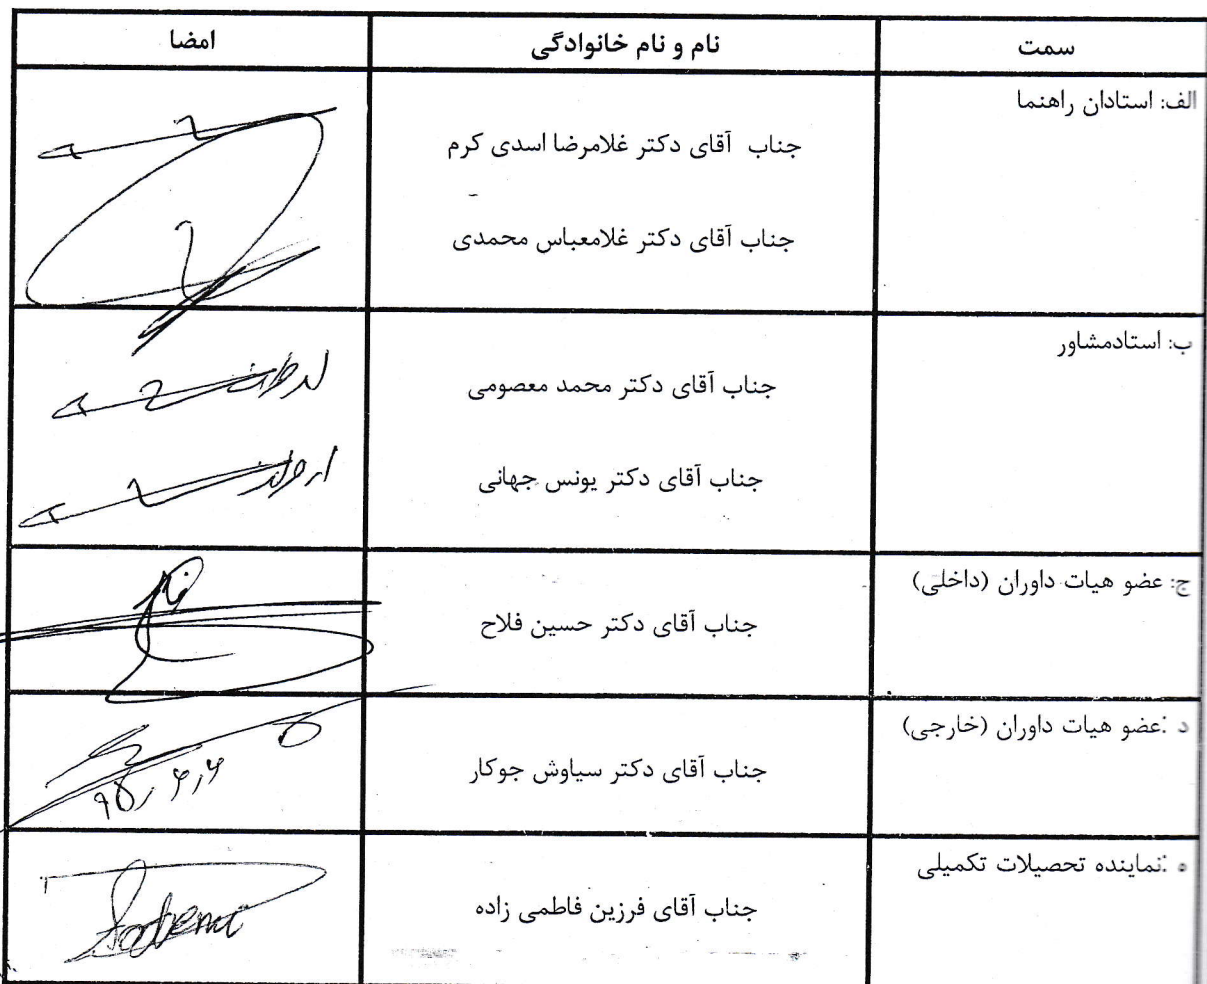 سمت	نام و نام خانوادگی	امضا
الف: استادان راهنما
جناب آقای دکتر غلامرضا اسدی کرم
جناب آقای دکتر غلامعباس محمدی
ب: استادمشاور
جناب آقای دکتر محمد معصومی
جناب آقای دکتر یونس جهانی
ج: عضو هیات داوران (داخلی)
جناب آقای دکتر حسین فلاح
د :عضو هیات داوران (خارجی)
جناب آقای دکتر سیاوش جوکار
ه :نماینده تحصیلات تکمیلی
جناب آقای فرزین فاطمی زاده